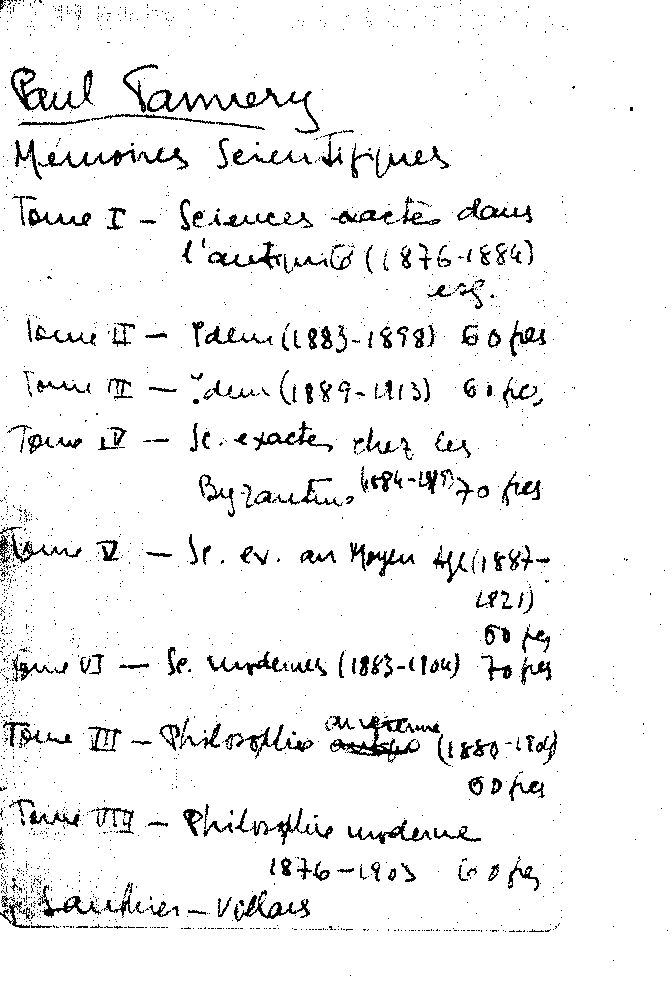 Paul Tannery
Mémoires Scientifiques
Tome I — Sciences exactes dans
l'antiquité (1876-1884)
esg.
Tome II — Idem (1883-1898) 60 frcs
Tome III — Idem (1889-1913) 60 frcs
Tome IV — Sc. exactes chez les
Byzantins 70 frcs
Tome V — Sc. ex. au Moyen Age (1887-
1921)
60 frcs
Tome VI — Sc. modernes (1883-1904) 70 frcs
Tome VII — Philosophie ancienne (1880-1904)
60 frcs
Tome VIII — Philosophie moderne
1876-1903 60 frcs
Gauthier-Villars